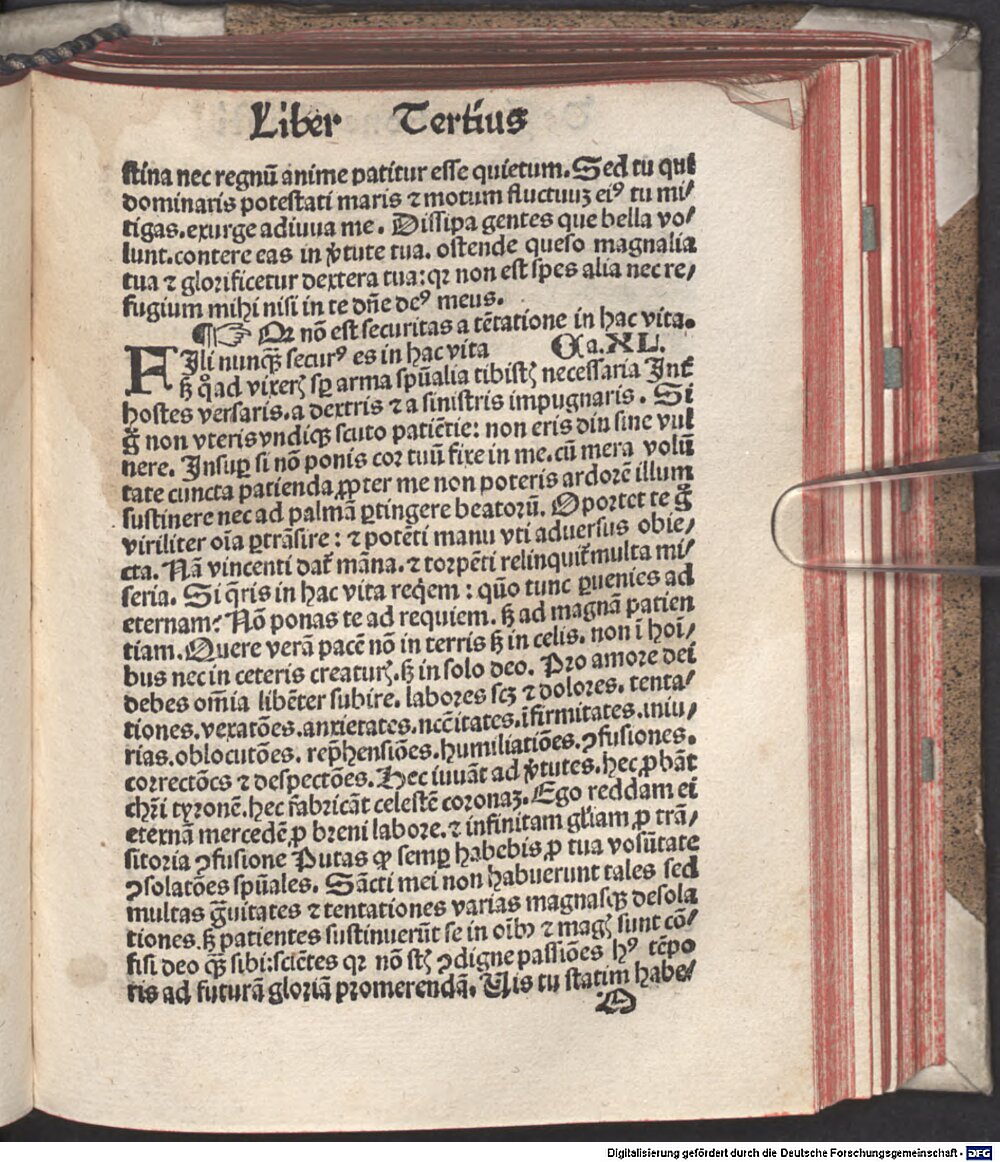 Liber Tertius
stina nec regnū anime patitur esse quietum. Sed tu qui
dominaris potestati maris ⁊ motum fluctuuꝫ eiꝰ tu mi⸗
tigas. exurge adiuua me. Dissipa gentes que bella vo⸗
lunt. contere eas in v̄tute tua. ostende queso magnalia
tua ⁊ glorificetur dextera tua: qꝛ non est spes alia nec re⸗
fugium mihi nisi in te dn̄e deꝰ meus.
¶☞ Qꝛ nō est securitas a tētatione in hac vita.
FIli nunqꝫ̄ securꝰ es in hac vita Ca. XL.
sꝫ qͦad vixerꝭ sꝑ arma spūalia tibi stꝫ necessaria Int̄
hostes versaris. a dextris ⁊ a sinistris impugnaris. Si
g̊ non vteris vndiqꝫ scuto patiētie: non eris diu sine vul
nere. Insuꝑ si nō ponis cor tuū fixe in me. cū mera volū
tate cuncta patienda ꝓpter me non poteris ardorē illum
sustinere nec ad palmā ꝑtingere beatorū. Oportet te g̊
viriliter oīa ꝑtrāsire: ⁊ potēti manu vti aduersus obie⸗
cta. Nā vincenti dat᷑ māna. ⁊ torpēti relinquit᷑ multa mi⸗
seria. Si q̄ris in hac vita reqͥem: quō tunc ꝑuenies ad
eternam? Nō ponas te ad requiem. sꝫ ad magnā patien
tiam. Quere verā pacē nō in terris sꝫ in celis. non ī hoī⸗
bus nec in ceteris creaturꝭ. sꝫ in solo deo. Pro amore dei
debes om̄ia libēter subire. labores scꝫ ⁊ dolores. tenta⸗
tiones. vexatōes. anxietates. nec̄itates. īfirmitates. iniu⸗
rias. oblocutōes. rep̄hensiōes. humiliatiōes. ꝯfusiones.
correctōes ⁊ despectōes. Hec iuuāt ad v̄tutes. hec ꝓbāt
chr̄i tyronē. hec fabricāt celestē coronaꝫ. Ego reddam ei
eternā mercedē ꝓ breui labore. ⁊ infinitam gl̄iam ꝓ trā⸗
sitoria ꝯfusione Putas ꝙ semꝑ habebis ꝓ tua volūtate
ꝯsolatōes spūales. Sācti mei non habuerunt tales sed
multas ḡuitates ⁊ tentationes varias magnasqꝫ desola
tiones. sꝫ patientes sustinuerūt se in oībꝰ ⁊ magꝭ sunt cō⸗
fisi deo qꝫ̄ sibi: sciētes qꝛ nō stꝫ ꝯdigne passiōes hꝰ tēpo
ris ad futurā gloriā promerendā. Uis tu statim habe⸗
O